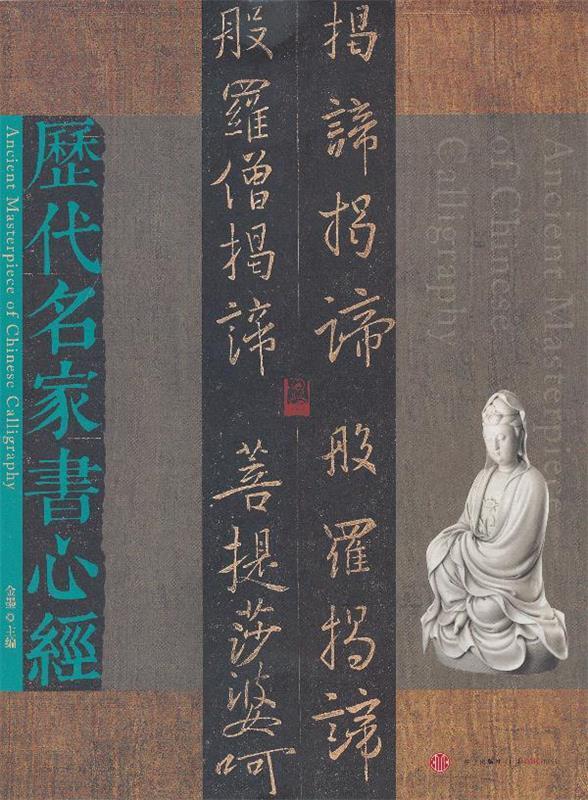 揭諦揭諦般羅揭諦
般羅僧揭諦 菩提莎婆呵
歷代名家書心經
Ancient Masterpiece of Chinese Calligraphy
金墨 ◎ 主编
Ancient Masterpiece
of Chinese
Calligraphy